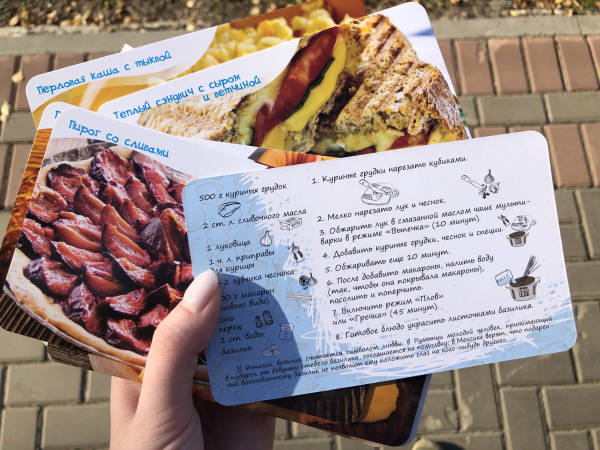 Перловая каша с тыквой
Теплый сэндвич с сыром
и ветчиной
Пирог со сливами
500 г куриных грудок
2 ст. л. сливочного масла
1 луковица
1 ч. л. приправы
для курицы
2 зубчика чеснока
г макарон
вида)
перец
2 ст. воды
базилик
1. Куриные грудки нарезать кубиками.
2. Мелко нарезать лук и чеснок.
3. Обжарить лук в смазанной маслом чаше мульти-
варки в режиме «Выпечка» (10 минут).
4. Добавить куриные грудки, чеснок и специи.
5. Обжаривать еще 10 минут.
6. После добавить макароны, налить воду
(так, чтобы она покрывала макароны),
посолить и поперчить.
7. Включить режим «Плов»
или «Гречка» (45 минут).
8. Готовое блюдо украсить листочками базилика.
В Италии базилик считается символом любви, в Румынии молодой человек, принимающий
в подарок от девушки стебель базилика, соглашается на помолвку; в Мексике верят, что подарен-
ный возлюбленному базилик не позволит ему положить глаз на кого-нибудь другого.